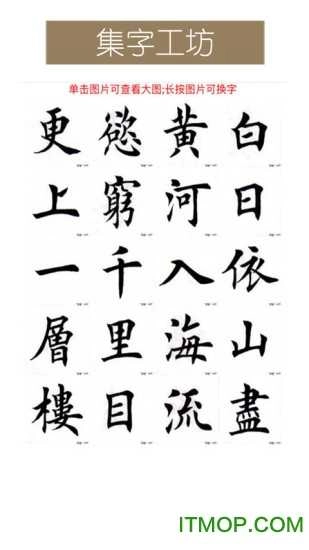 集字工坊
单击图片可查看大图;长按图片可换字
白日依山盡
黄河入海流
慾窮千里目
更上一層樓
ITMOP.COM